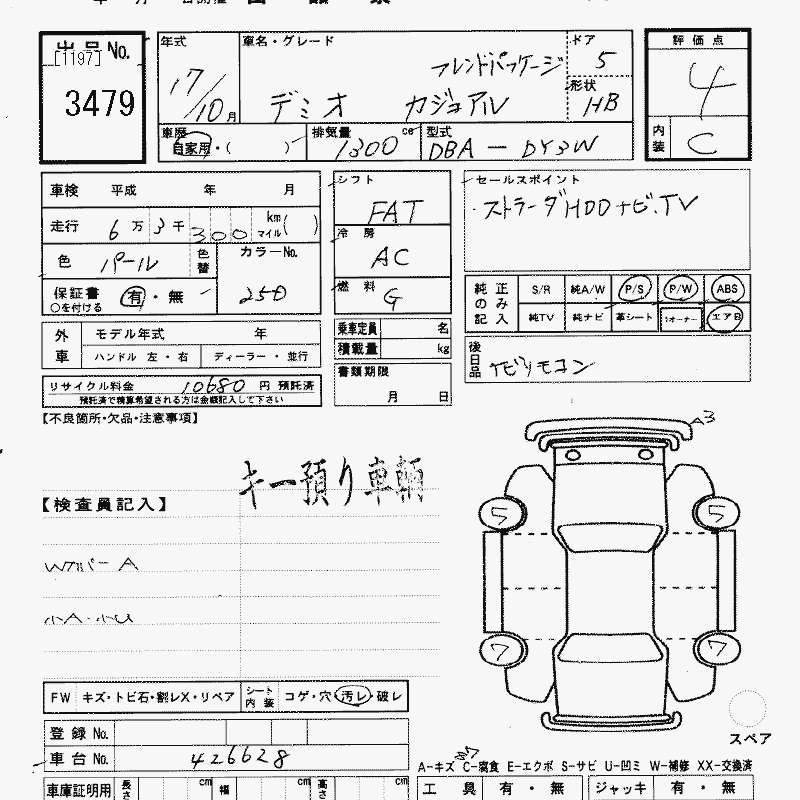 出品No.
[1197]
3479
年式
17/10月
車名・グレード
フレンドパッケージ
デミオ カジュアル
ドア
5
形状
HB
評価点
4
内装 C
車歴
自家用・( )
排気量
1300 cc
型式
DBA-DY3W
車検 平成 年 月
走行 6万3千300 km マイル( )
色 パール 色替
カラーNo.
25D
保証書 有・無
○を付ける
シフト
FAT
冷房
AC
燃料
G
セールスポイント
・ストラーダHDDナビ、TV
純正のみ記入
S/R 純A/W P/S P/W ABS
純TV 純ナビ 革シート 1オーナー エアB
外車
モデル年式 年
ハンドル 左・右 ディーラー・並行
乗車定員 名
積載量 kg
後日品 ナビリモコン
リサイクル料金 10680 円 預託済
預託済で精算希望される方は金額記入して下さい
書類期限
月 日
【不良箇所・欠品・注意事項】
キー預り車輌
【検査員記入】
WアルバーA
小A・小U
A3
5 5
7 7
スペア
FW キズ・トビ石・割レX・リペア
シート内装 コゲ・穴・汚レ・破レ
登録No.
車台No. 426628
A-キズ C-腐食 E-エクボ S-サビ U-凹ミ W-補修 XX-交換済
車庫証明用 長さ cm 幅 cm 高さ cm
工具 有・無 ジャッキ 有・無